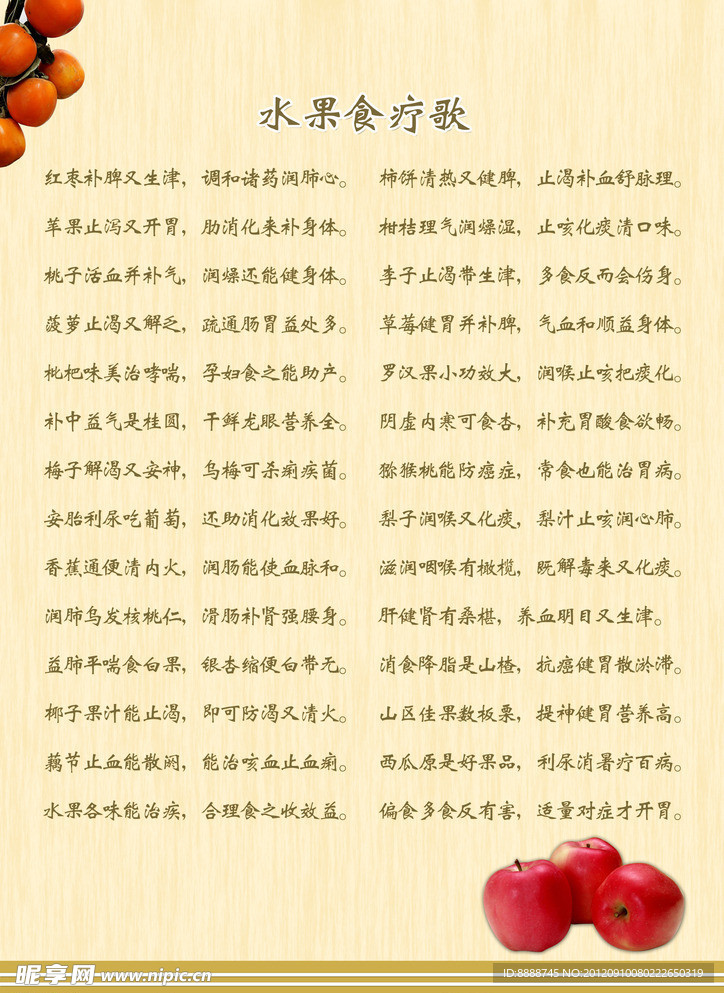 水果食疗歌
红枣补脾又生津，调和诸药润肺心。
苹果止泻又开胃，肋消化来补身体。
桃子活血并补气，润燥还能健身体。
菠萝止渴又解乏，疏通肠胃益处多。
枇杷味美治哮喘，孕妇食之能助产。
补中益气是桂圆，干鲜龙眼营养全。
梅子解渴又安神，乌梅可杀痢疾菌。
安胎利尿吃葡萄，还助消化效果好。
香蕉通便清内火，润肠能使血脉和。
润肺乌发核桃仁，滑肠补肾强腰身。
益肺平喘食白果，银杏缩便白带无。
椰子果汁能止渴，即可防渴又清火。
藕节止血能散阏，能治咳血止血痢。
水果各味能治疾，合理食之收效益。
柿饼清热又健脾，止渴补血舒脉理。
柑桔理气润燥湿，止咳化痰清口味。
李子止渴带生津，多食反而会伤身。
草莓健胃并补脾，气血和顺益身体。
罗汉果小功效大，润喉止咳把痰化。
阴虚内寒可食杏，补充胃酸食欲畅。
猕猴桃能防癌症，常食也能治胃病。
梨子润喉又化痰，梨汁止咳润心肺。
滋润咽喉有橄榄，既解毒来又化痰。
肝健肾有桑椹，养血明目又生津。
消食降脂是山楂，抗癌健胃散淤滞。
山区佳果数板栗，提神健胃营养高。
西瓜原是好果品，利尿消暑疗百病。
偏食多食反有害，适量对症才开胃。
昵享网 www.nipic.cn
ID:8888745 NO:20120910080222650319